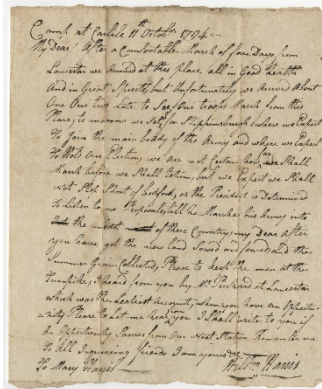 Camp at Carlisle 11th October 1794
My Dear, After a Comfortable March of four Days from
Lancaster we arrived at this place, all in Good health
And in Great Spirits, but Unfortunately we arrived About
One Our two late to See One troops March from this
Place, to morrow we Set for Shippinsburgh where we Expect
to Join the main body of the Army and where we Expect
to Hold Our Election, we are not Certain how far we Shall
March before we Shall Return, but we Expect we Shall
not Stop Short of Bedford, as the President is Determined
to Listen to no Proposals till he Marches his Army into
the midst of these Country, my Dear After
you have got the new land Sowed and the
Summer Grain Collected, Please to keep the men at the
Turnpike, I heard from you by Mr. at Lancaster
which was the Account, when you have an Opportu-
nity Please to Let me hear from you I Shall write to you if
an Opportunity from Our Next Station Remember me
to All Inquiring friends I am yours
William Harris
To Mary Harris